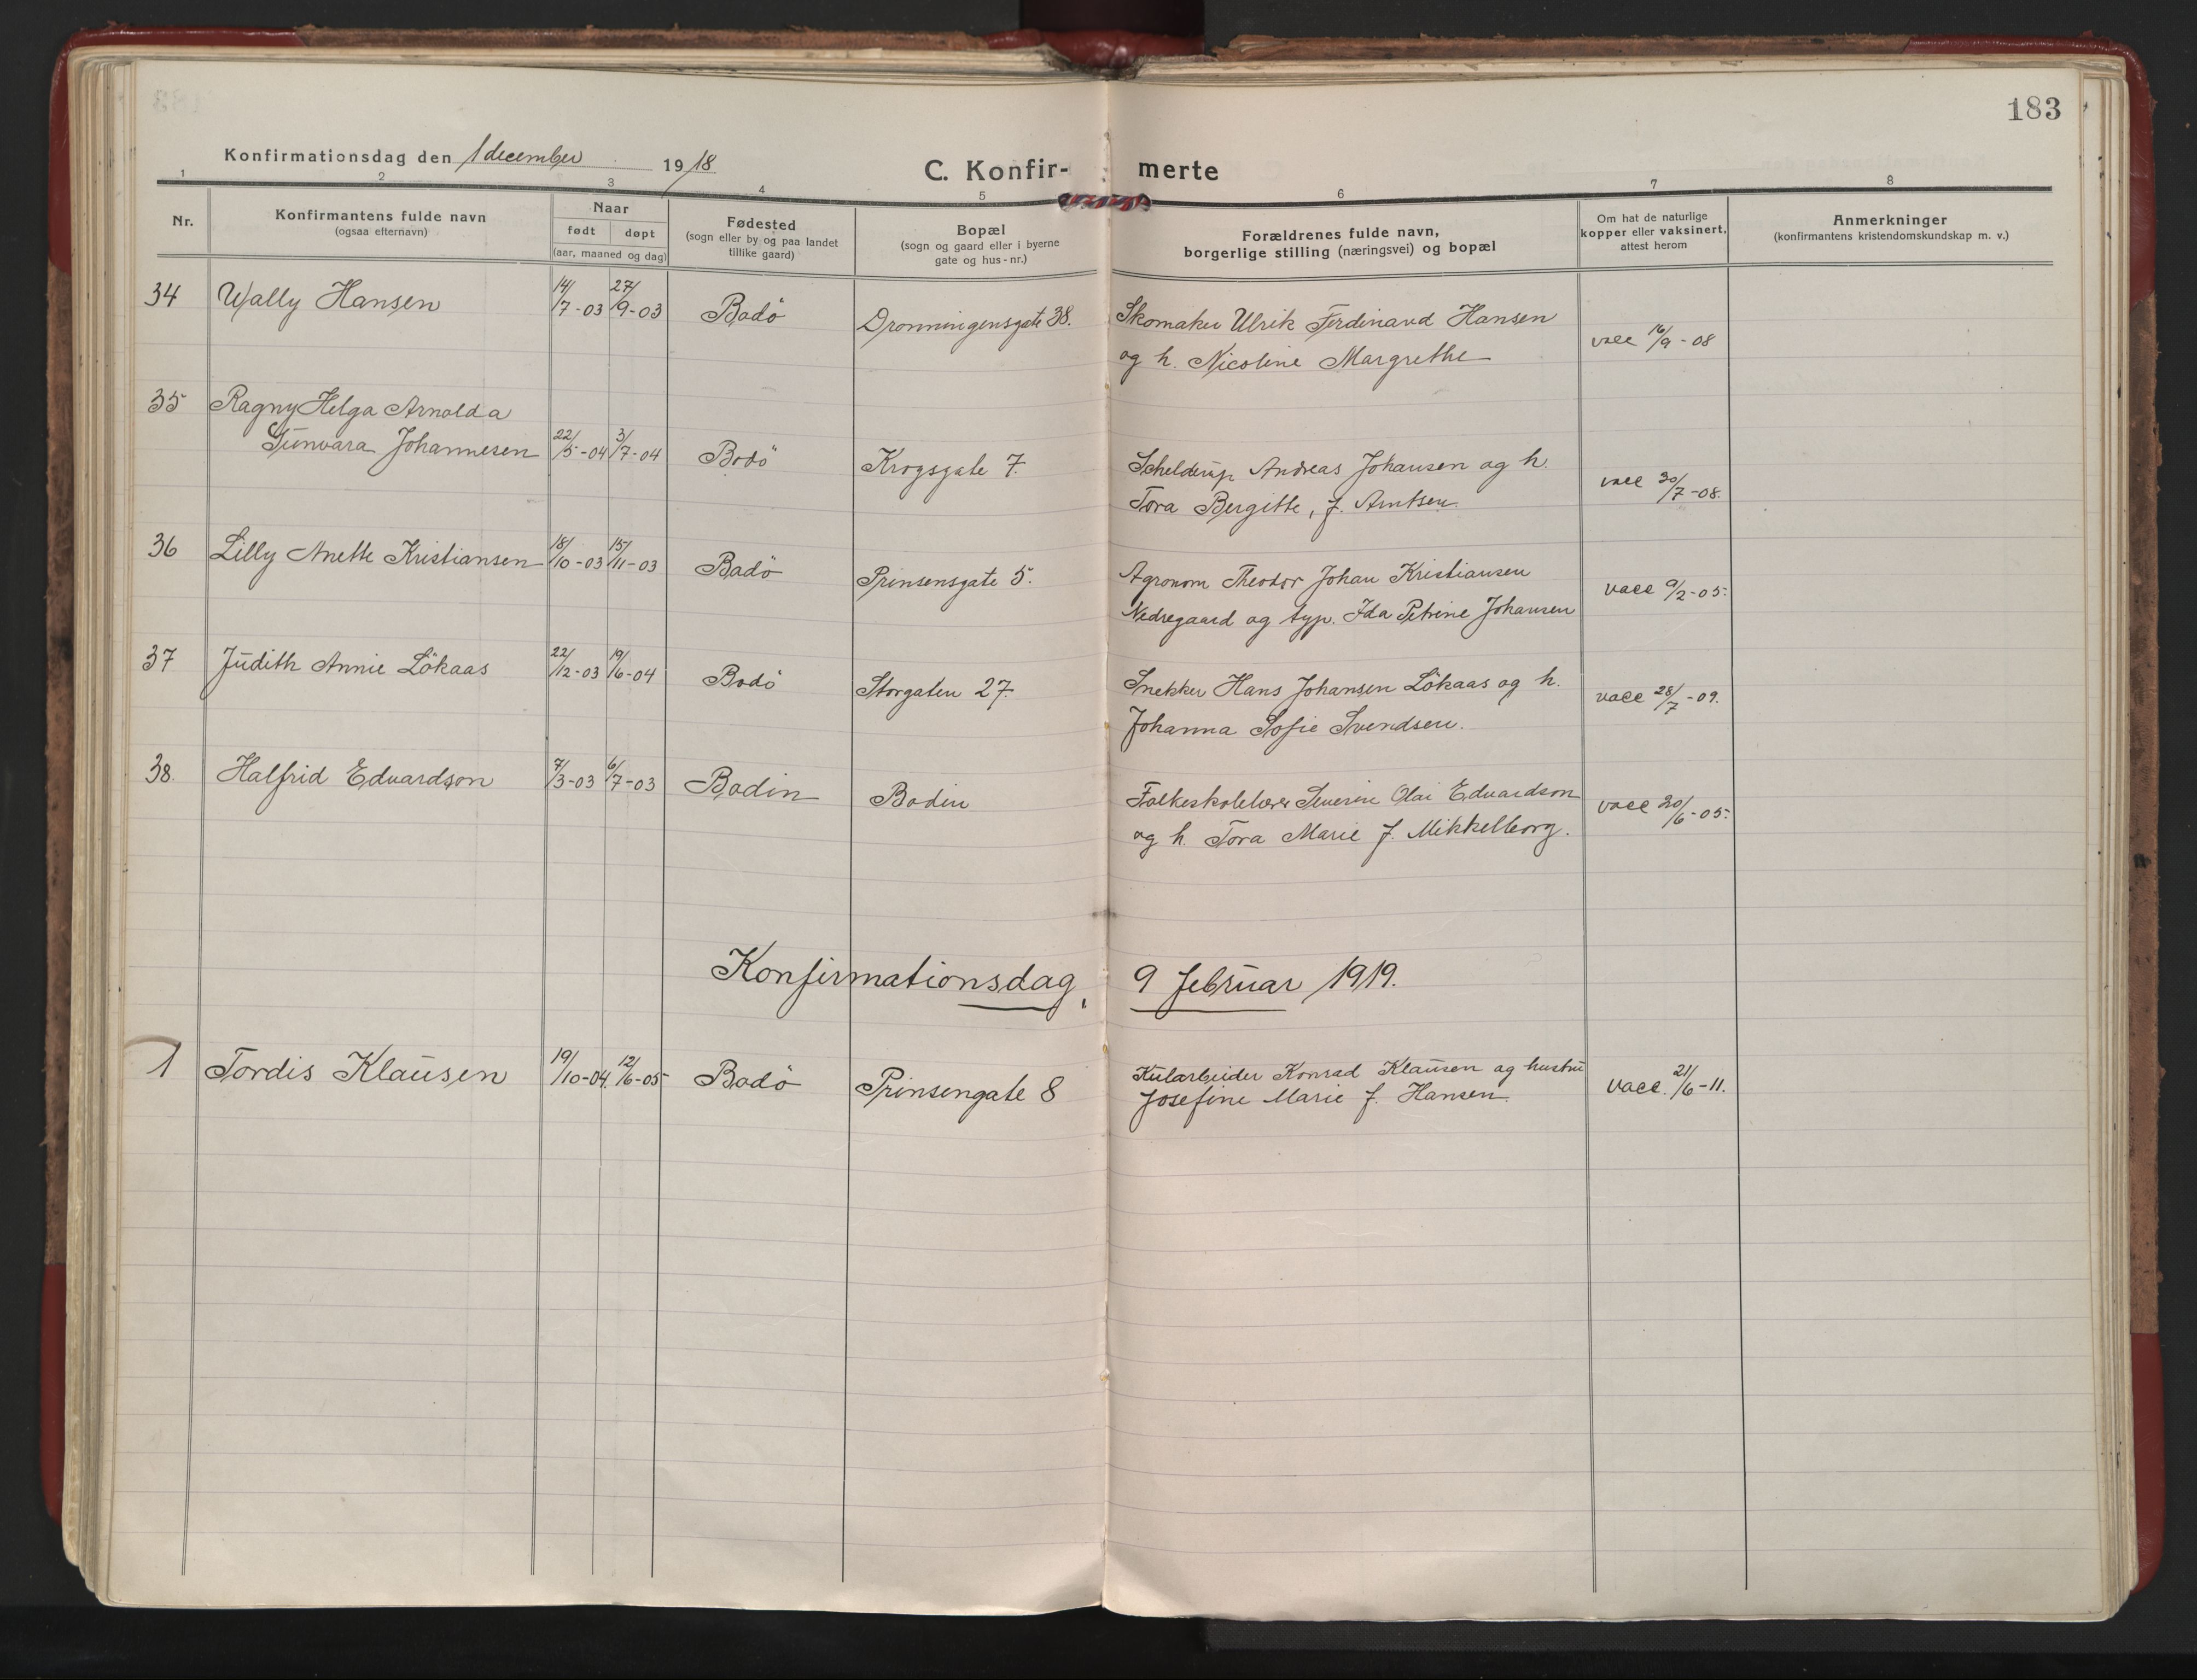 183
Konfirmationsdag den 1 december 1918
C. Konfir- merte
1 2 3 4 5 6 7 8
Nr.
Konfirmantens fulde navn
(ogsaa efternavn)
Naar
født døpt
(aar, maaned og dag)
Fødested
(sogn eller by og paa landet
tillike gaard)
Bopæl
(sogn og gaard eller i byerne
gate og hus-nr.)
Forældrenes fulde navn,
borgerlige stilling (næringsvei) og bopæl
Om hat de naturlige
kopper eller vaksinert,
attest herom
Anmerkninger
(konfirmantens kristendomskundskap m. v.)
34 Wally Hansen 14/7-03 27/9-03 Bodö Dronningensgate 38. Skomaker Ulrik Ferdinand Hansen vacc 16/9-08
og h. Nicoline Margrethe
35 Ragny Helga Arnolda
Gunvara Johannesen 22/5-04 3/7-04 Bodö Krogsgate 7. Schelderup Andreas Johansen og h. vacc 30/7-08.
Tora Bergitte, f. Arntsen.
36 Lilly Anette Kristiansen 18/10-03 15/11-03 Bodö Prinsensgate 5. Agronom Theodor Johan Kristiansen vacc 9/2-05.
Nedregaard og typ. Ida Petrine Johansen
37 Judith Annie Lökaas 22/12-03 19/6-04 Bodö Storgaten 27. Snekker Hans Johansen Lökaas og h. vacc 28/7-09.
Johanna Sofie Svendsen.
38. Halfrid Edvardson 7/3-03 6/7-03 Bodin Bodin Folkeskolelærer Severin Olai Edvardson vacc 20/6-05.
og h. Tora Marie f. Mikkelborg.
Konfirmationsdag, 9 februar 1919.
1 Tordis Klausen 19/10-04. 12/6-05 Bodö Prinsengate 8 Kularbeider Konrad Klausen og hustru vacc. 21/6-11.
Josefine Marie f. Hansen.